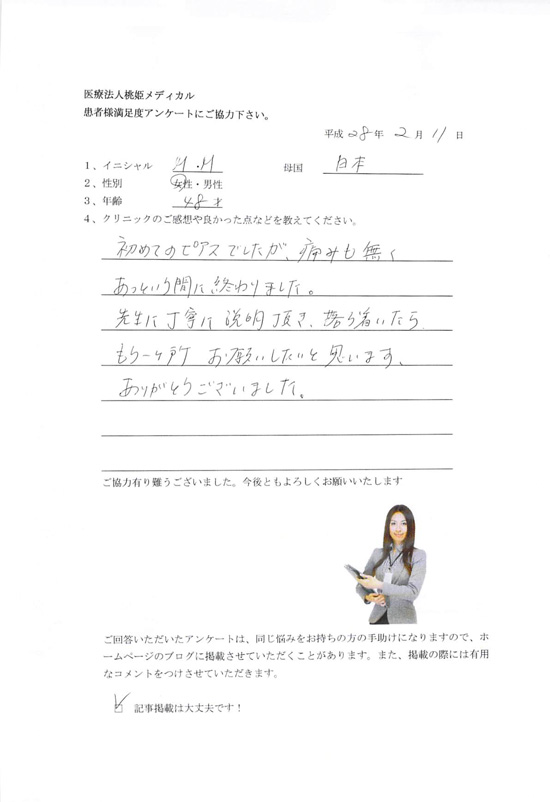 医療法人桃姫メディカル
患者様満足度アンケートにご協力下さい。
平成 28 年 2 月 11 日
1、イニシャル M.M 母国 日本
2、性別 女性・男性
3、年齢 48才
4、クリニックのご感想や良かった点などを教えてください。
初めてのピアスでしたが、痛みも無く
あっという間に終わりました。
先生に丁寧に説明頂き、落ち着いたら
もう一ヶ所 お願いしたいと思います、
ありがとうございました。
ご協力有り難うございました。今後ともよろしくお願いいたします
ご回答いただいたアンケートは、同じ悩みをお持ちの方の手助けになりますので、ホ
ームページのブログに掲載させていただくことがあります。また、掲載の際には有用
なコメントをつけさせていただきます。
記事掲載は大丈夫です!